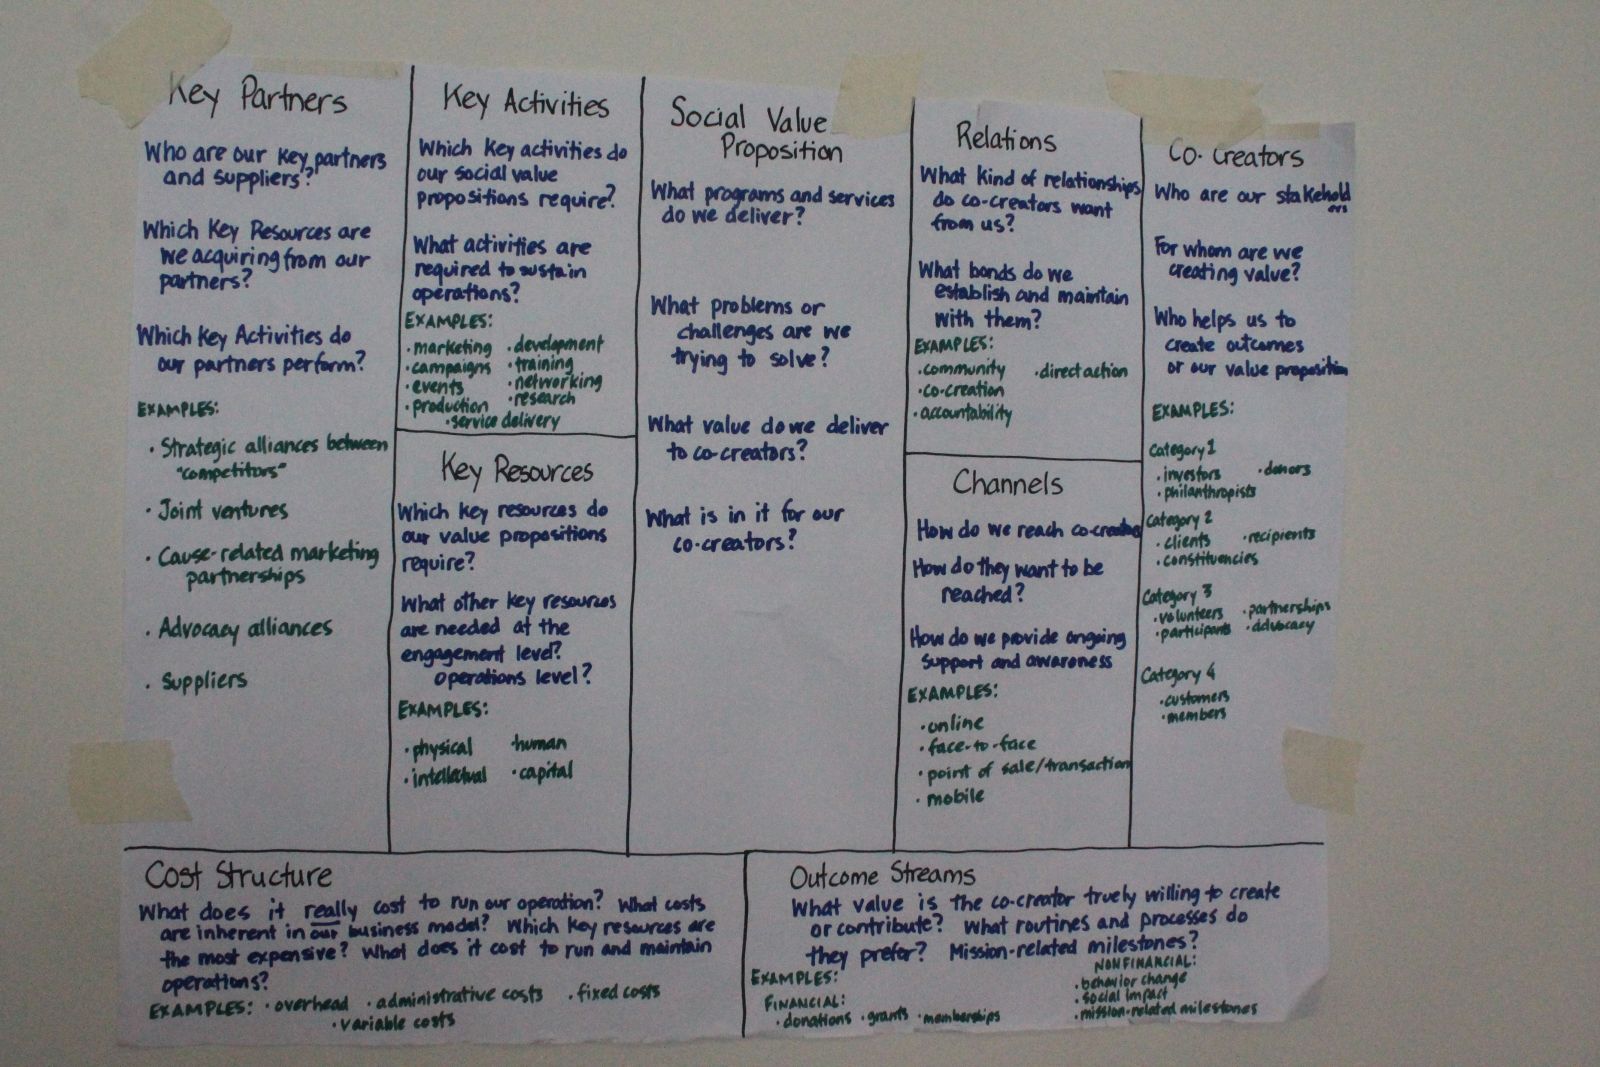 Key Partners
Who are our key partners
and suppliers?
Which Key Resources are
we acquiring from our
partners?
Which Key Activities do
our partners perform?
EXAMPLES:
• Strategic alliances between
"competitors"
• Joint ventures
• Cause-related marketing
partnerships
• Advocacy alliances
• Suppliers
Key Activities
Which key activities do
our social value
propositions require?
What activities are
required to sustain
operations?
EXAMPLES:
• marketing • development
• campaigns • training
• events • networking
• production • research
• service delivery
Key Resources
Which key resources do
our value propositions
require?
What other key resources
are needed at the
engagement level?
operations level?
EXAMPLES:
• physical • human
• intellectual • capital
Social Value
Proposition
What programs and services
do we deliver?
What problems or
challenges are we
trying to solve?
What value do we deliver
to co-creators?
What is in it for our
co-creators?
Relations
What kind of relationships
do co-creators want
from us?
What bonds do we
establish and maintain
with them?
EXAMPLES:
• community • direct action
• co-creation
• accountability
Channels
How do we reach co-creators
How do they want to be
reached?
How do we provide ongoing
support and awareness
EXAMPLES:
• online
• face-to-face
• point of sale/transaction
• mobile
Co-Creators
Who are our stakehold
ers
For whom are we
creating value?
Who helps us to
create outcomes
or our value proposition
EXAMPLES:
Category 1
• investors • donors
• philanthropists
Category 2
• clients • recipients
• constituencies
Category 3
• volunteers • partnerships
• participants • advocacy
Category 4
• customers
• members
Cost Structure
What does it really cost to run our operation? What costs
are inherent in our business model? Which key resources are
the most expensive? What does it cost to run and maintain
operations?
EXAMPLES: • overhead • administrative costs • fixed costs
• variable costs
Outcome Streams
What value is the co-creator truely willing to create
or contribute? What routines and processes do
they prefer? Mission-related milestones?
EXAMPLES:
FINANCIAL:
• donations • grants • memberships
NONFINANCIAL:
• behavior change
• social impact
• mission-related milestones